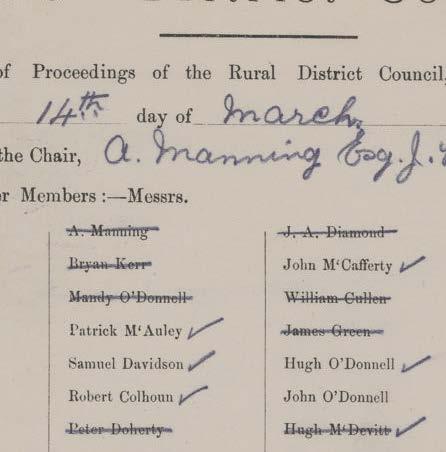 of Proceedings of the Rural District Council,
14th day of March.
the Chair, A. Manning Esq. J.
r Members :—Messrs.
A. Manning
Bryan Kerr
Mandy O'Donnell
Patrick M'Auley ✓
Samuel Davidson ✓
Robert Colhoun ✓
Peter Doherty
J. A. Diamond
John M'Cafferty ✓
William Cullen
James Green
Hugh O'Donnell ✓
John O'Donnell
Hugh M'Devitt ✓